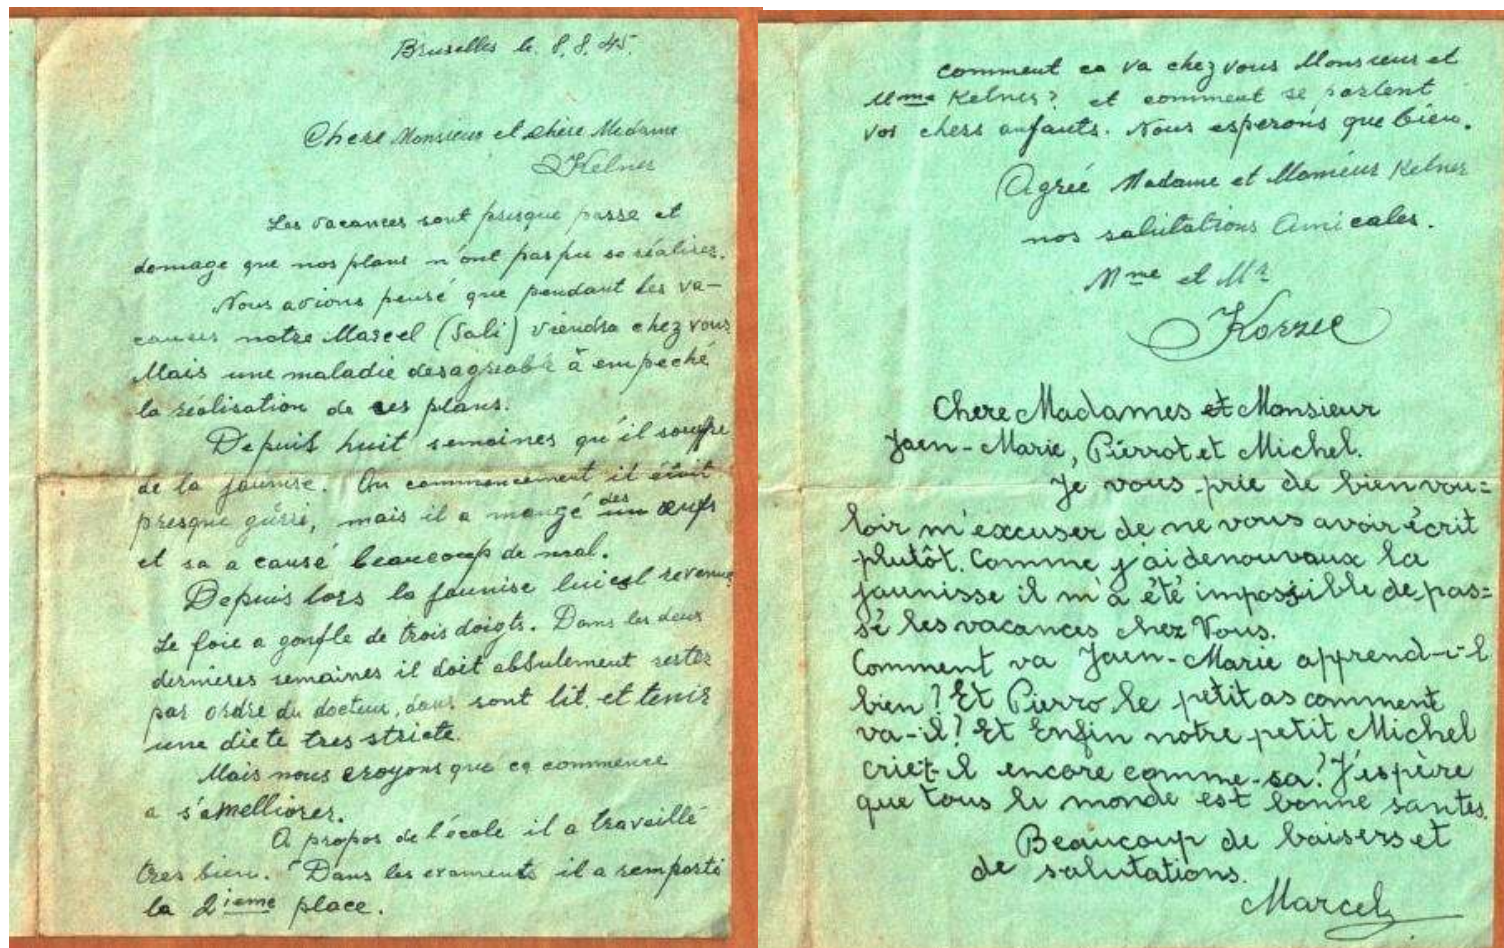 Bruxelles le. 8.8.45.
Chere Monsieur et chère Madame
Kelner
Les vacances sont presque passe et
domage que nos plans n'ont pas pu se réaliser.
Nous avions pensé que pendant les va-
cances notre Marcel (Sali) viendra chez vous
Mais une maladie desagreable à empeché
la réalisation de ces plans.
Depuis huit semaines qu'il souffre
de la jaunise. Au commencement il était
presque guérri, mais il a mangé un des œufs
et sa a causé beaucoup de mal.
Depuis lors la jaunise lui est revenue.
Le foie a gonfle de trois doigts. Dans les deux
dernieres semaines il doit absulement rester
par ordre du docteur, dans sont lit, et tenir
une diete tres stricte.
Mais nous croyons que ça commence
a s'amelliorer.
A propos de l'école il a travaillé
tres bien. Dans les examents il a remporté
la 2ieme place.
comment ca va chez vous Monsieur et
Mme Kelner? et comment se portent
vos chers anfants. Nous esperons que bien.
Agréé Madame et Monsieur Kelner
nos salutations Amicales.
Mme et Mr
Korzec
Chere Madames et Monsieur
Jaen-Marie, Pierrot et Michel.
Je vous prie de bien vou=
loir m'excuser de ne vous avoir écrit
plutôt. Comme j'ai denouvaux la
jaunisse il m'a été impossible de pas=
sé les vacances chez Vous.
Comment va Jaen-Marie apprend-i-l
bien? Et Pierro le petit as comment
va-il? Et Enfin notre petit Michel
criet-il encore comme-sa? J'espère
que tous le monde est bonne santes.
Beaucoup de baisers et
de salutations.
Marcel